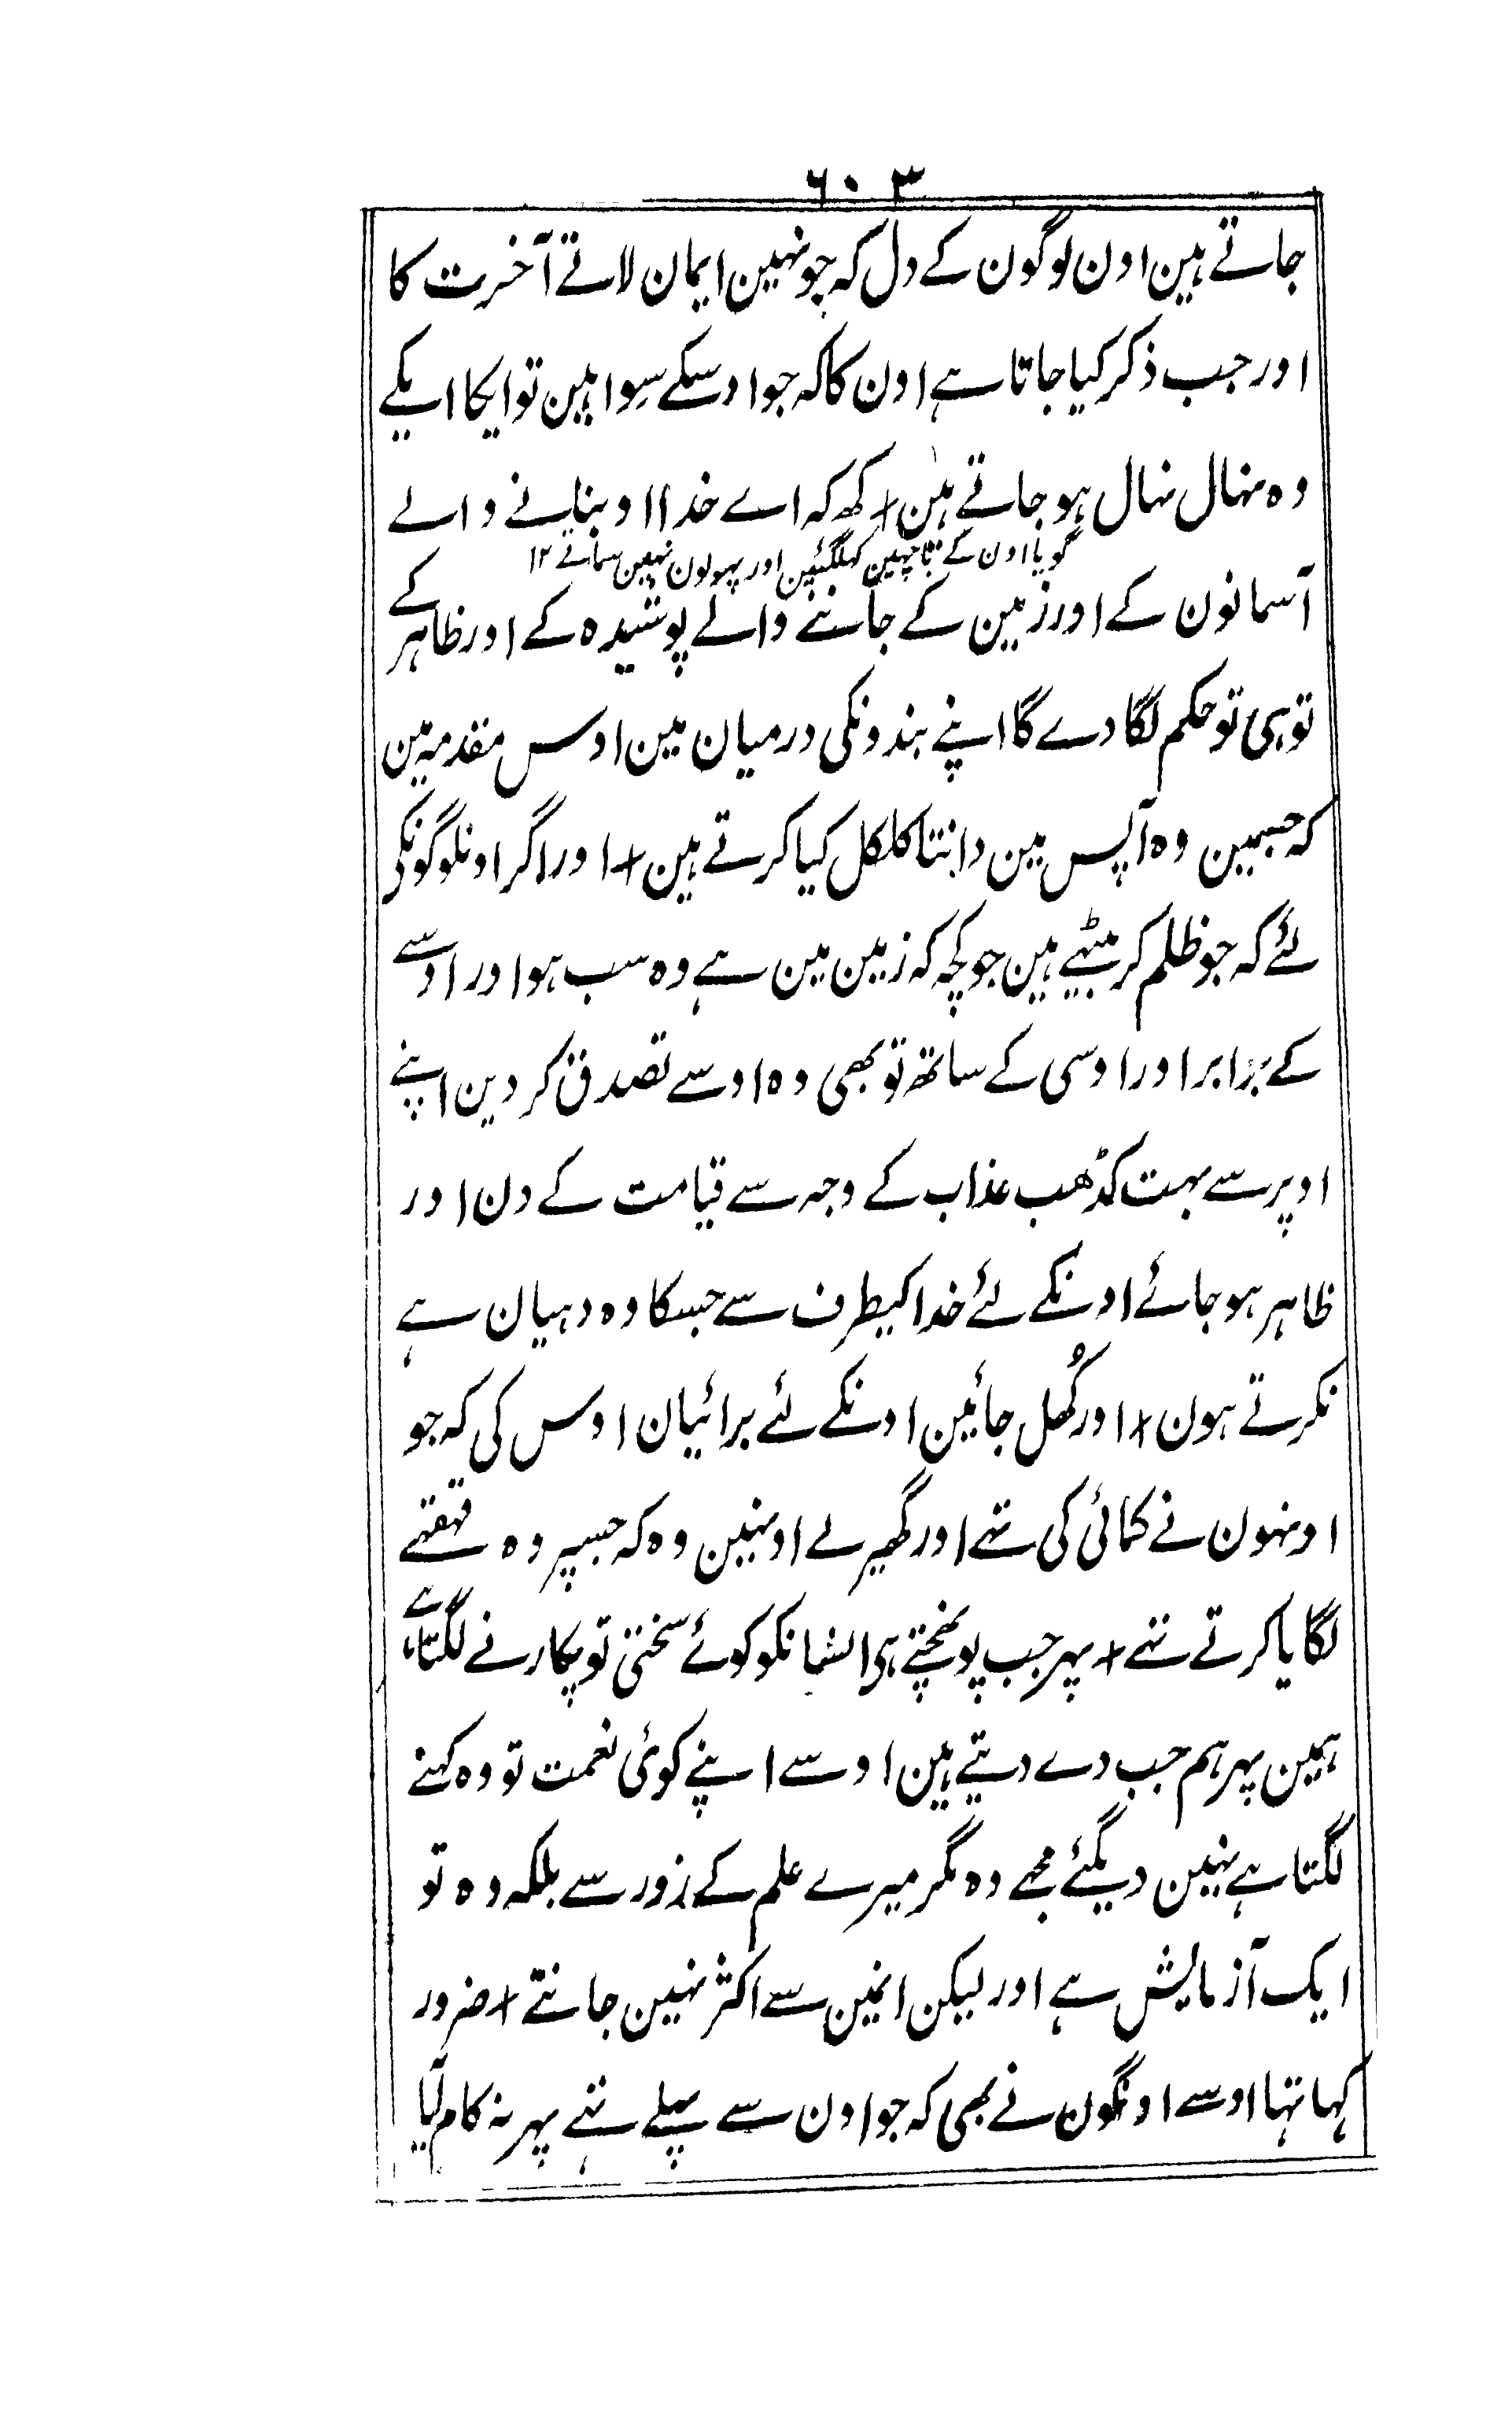 ۶۰۳
جاتے ہین اون لوگون کے دل کہ جو نہین ایمان لاتے آخرت کا
اور جب ذکر کیا جاتا ہے اون کا کہ جو اوسکے سِوا ہین تو ایکا ایکے
وہ نہال نہال ہو جاتے ہین + کہہ کہ اے خدا او بنانے والے
گویا اون کے باچہین کہلگئین اور پہولون نہین سماتے ۱۲
آسمانون کے اور زمین کے جاننے والے پوشیدہ کے اور ظاہر کے
توہی تو حکم لگا دے گا اپنے بندونکی درمیان مین اوس مقدمہ مین
کہ جسمین وہ آپس مین دانتا کلکل کیا کرتے ہین + اور اگر اونلوگونکی
لئے کہ جو ظلم کر بیٹہے ہین جو کچہ کہ زمین مین ہے وہ سب ہو اور اوسے
کے برابر اور اوسی کے ساتھ تو بھی وہ اوسے تصدق کر دین اپنے
اوپر سے بہت کڈھب عذاب کے وجہ سے قیامت کے دن اور
ظاہر ہو جائے اونکے لئے خدا کیطرف سے جسکا وہ دہیان ہے
نکرتے ہون + اور کُھل جائین اونکے لئے برائیان اوس کی کہ جو
اونہون نے کمائی کی تہے اور گھیر لے اونہین وہ کہ جسپر وہ قہقہے
لگایا کرتے تہے + پہر جب پونہچتے ہی انسانکو کوئے سختی تو پکارنے لگتا ہے
ہمین پہر ہم جب دے دیتے ہین اوسے اپنے کوئی نعمت تو وہ کہنے
لگتا ہے نہین دیگئے مجہے وہ مگر میرے علم کے زور سے بلکہ وہ تو
ایک آزمایش ہے اور لیکن انمین سے اکثر نہین جانتے + ضرور
کہا تہا اوسے اونگون نے بھی کہ جو اون سے پہلے تہے پہر نہ کام آیا